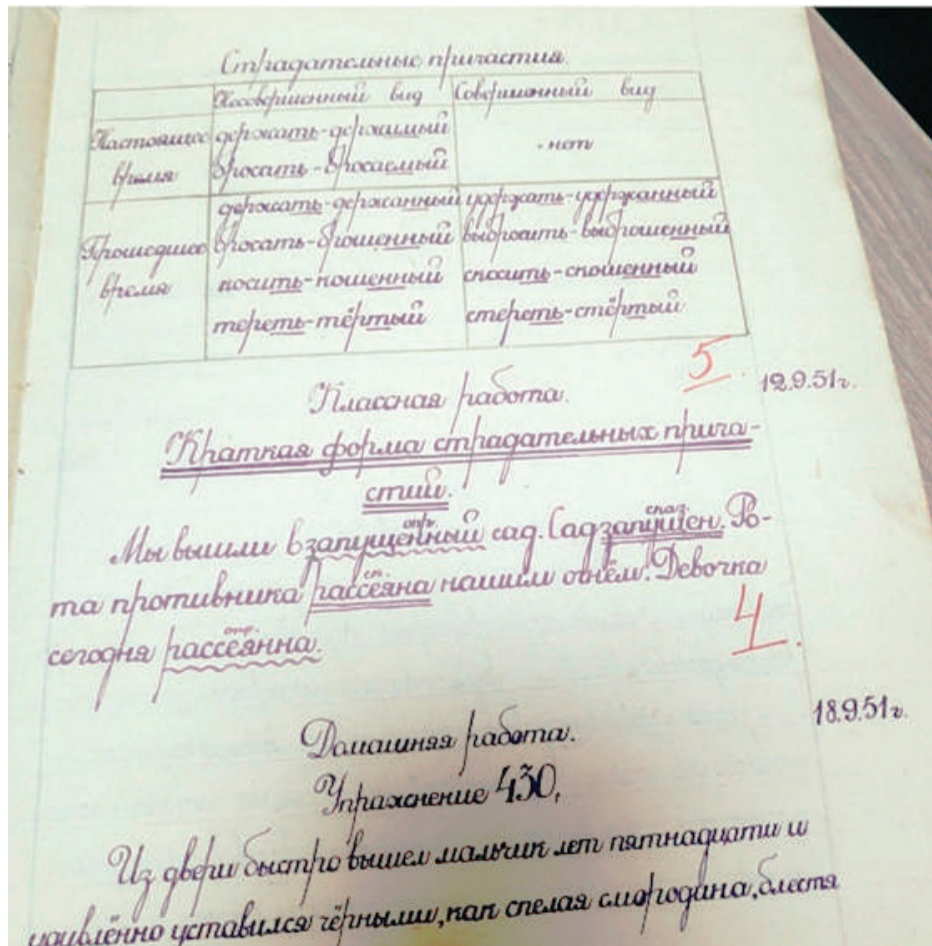 Страдательные причастия.
Несовершенный вид Совершенный вид
Настоящее время
держать-держимый
бросать-бросаемый
-нет
Прошедшее время
держать-держанный удержать-удержанный
бросать-брошенный выбросить-выброшенный
косить-кошенный скосить-скошенный
тереть-тёртый стереть-стёртый
5
12.9.51г.
Классная работа.
Краткая форма страдательных прича-
стий.
опр. сказ.
Мы вышли в запущенный сад. Сад запущен. Ро-
ск.
та противника рассеяна нашим огнём. Девочка
опр.
сегодня рассеянна.
4.
18.9.51г.
Домашняя работа.
Упражнение 430,
Из двери быстро вышел мальчик лет пятнадцати и
удивлённо уставился чёрными, как спелая смородина, блестя